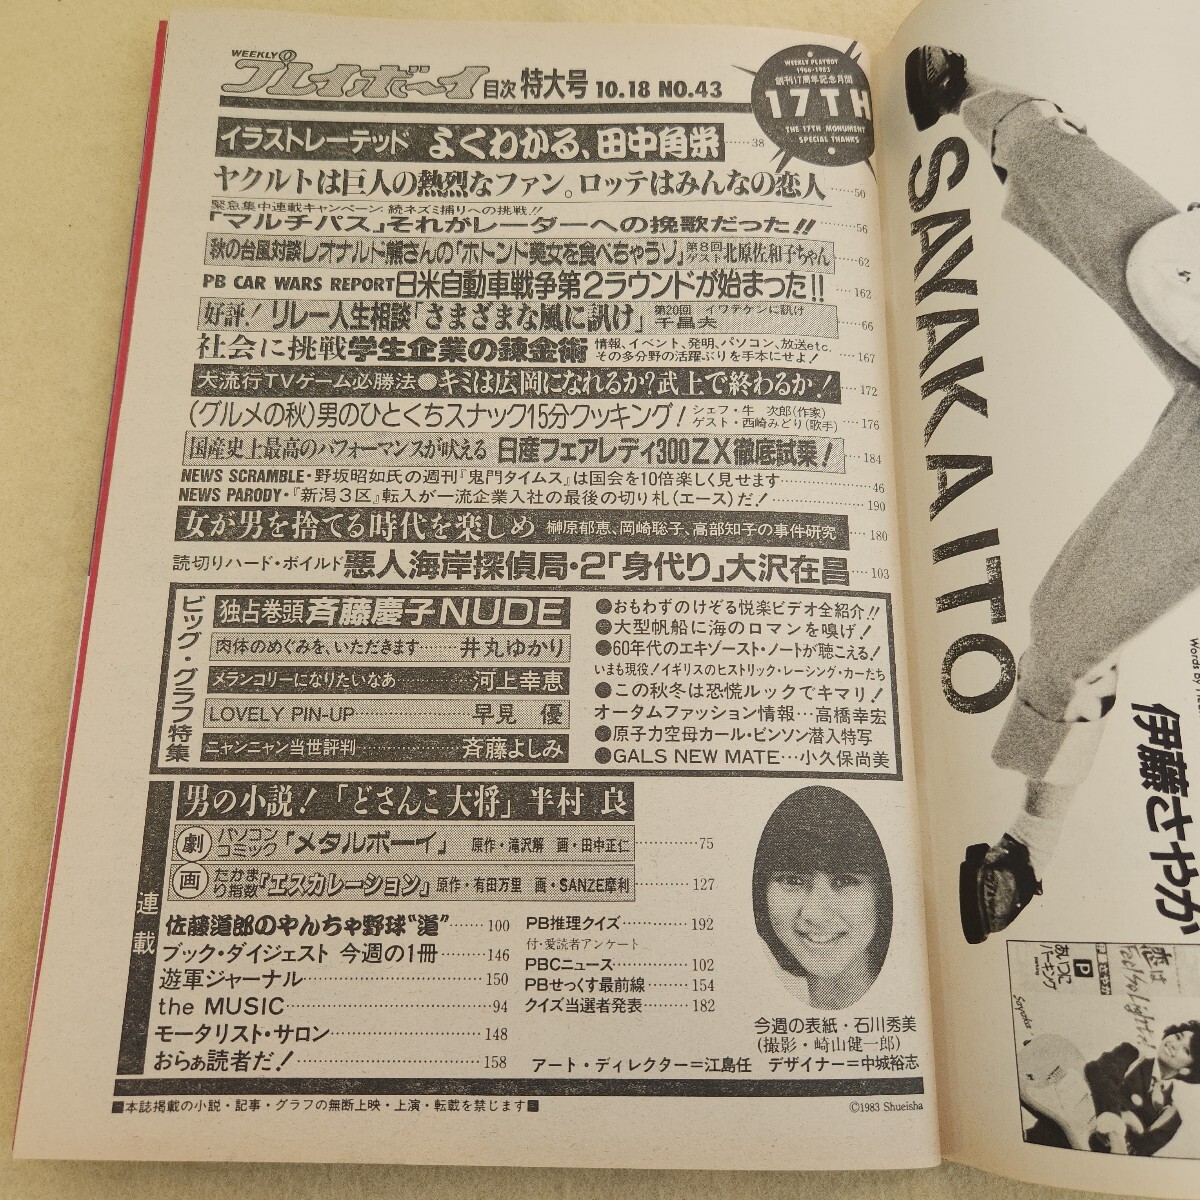 WEEKLY
プレイボーイ 目次 特大号 10.18 NO.43
WEEKLY PLAYBOY
1966-1983
創刊17周年記念月間
17TH
THE 17TH MONUMENT
SPECIAL THANKS
イラストレーテッド よくわかる、田中角栄……38
ヤクルトは巨人の熱烈なファン。ロッテはみんなの恋人……50
緊急集中連載キャンペーン:続ネズミ捕りへの挑戦!!
「マルチパス」それがレーダーへの挽歌だった!!……56
秋の台風対談レオナルド熊さんの「ホトンド美女を食べちゃうゾ」第8回ゲスト北原佐和子ちゃん……62
PB CAR WARS REPORT 日米自動車戦争第2ラウンドが始まった!!……162
好評!リレー人生相談「さまざまな風に訊け」第20回 イワテケンに訊け 千昌夫……66
社会に挑戦学生企業の錬金術 情報、イベント、発明、パソコン、放送etc.
その多分野の活躍ぶりを手本にせよ!……167
大流行TVゲーム必勝法●キミは広岡になれるか?武上で終わるか!……172
(グルメの秋)男のひとくちスナック15分クッキング! シェフ・牛 次郎(作家)
ゲスト・西崎みどり(歌手)……176
国産史上最高のパフォーマンスが吠える 日産フェアレディ300ZX徹底試乗!……184
NEWS SCRAMBLE・野坂昭如氏の週刊『鬼門タイムス』は国会を10倍楽しく見せます……46
NEWS PARODY・『新潟3区』転入が一流企業入社の最後の切り札(エース)だ!……190
女が男を捨てる時代を楽しめ 榊原郁恵、岡崎聡子、高部知子の事件研究……180
読切りハード・ボイルド 悪人海岸探偵局・2「身代り」大沢在昌……103
ビッグ・グラフ特集
独占巻頭 斉藤慶子NUDE
肉体のめぐみを、いただきます……井丸ゆかり
メランコリーになりたいなあ……河上幸恵
LOVELY PIN-UP……早見 優
ニャンニャン当世評判……斉藤よしみ
●おもわずのけぞる悦楽ビデオ全紹介!!
●大型帆船に海のロマンを嗅げ!
●60年代のエキゾースト・ノートが聴こえる!
いまも現役!イギリスのヒストリック・レーシング・カーたち
●この秋冬は恐慌ルックでキマリ!
オータムファッション情報…高橋幸宏
●原子力空母カール・ビンソン潜入特写
●GALS NEW MATE…小久保尚美
連載
男の小説!「どさんこ大将」半村 良
劇 パソコンコミック「メタルボーイ」 原作・滝沢解 画・田中正仁……75
画 たかまり指数『エスカレーション』原作・有田万里 画・SANZE摩利……127
佐藤道郎のやんちゃ野球“道”……100
ブック・ダイジェスト 今週の1冊……146
遊軍ジャーナル……150
the MUSIC……94
モータリスト・サロン……148
おらぁ読者だ!……158
PB推理クイズ……192
付・愛読者アンケート
PBCニュース……102
PBせっくす最前線……154
クイズ当選者発表……182
今週の表紙・石川秀美
(撮影・崎山健一郎)
アート・ディレクター=江島任 デザイナー=中城裕志
■本誌掲載の小説・記事・グラフの無断上映・上演・転載を禁じます■
©1983 Shueisha
SANAKA ITO
伊藤さやか
Words by
恋は
Feeling Light
あいつに
パーキング
P
伊藤さやか
Sayaka